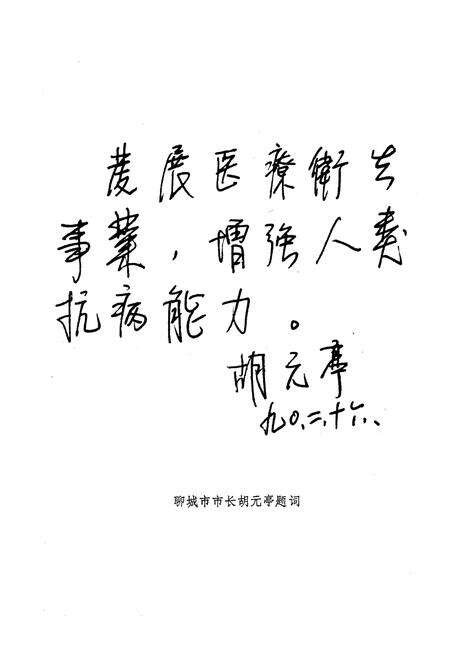 发展医疗衛生
事業，增强人类
抗病能力。
胡元亭
九〇.二.十六.
聊城市市长胡元亭题词